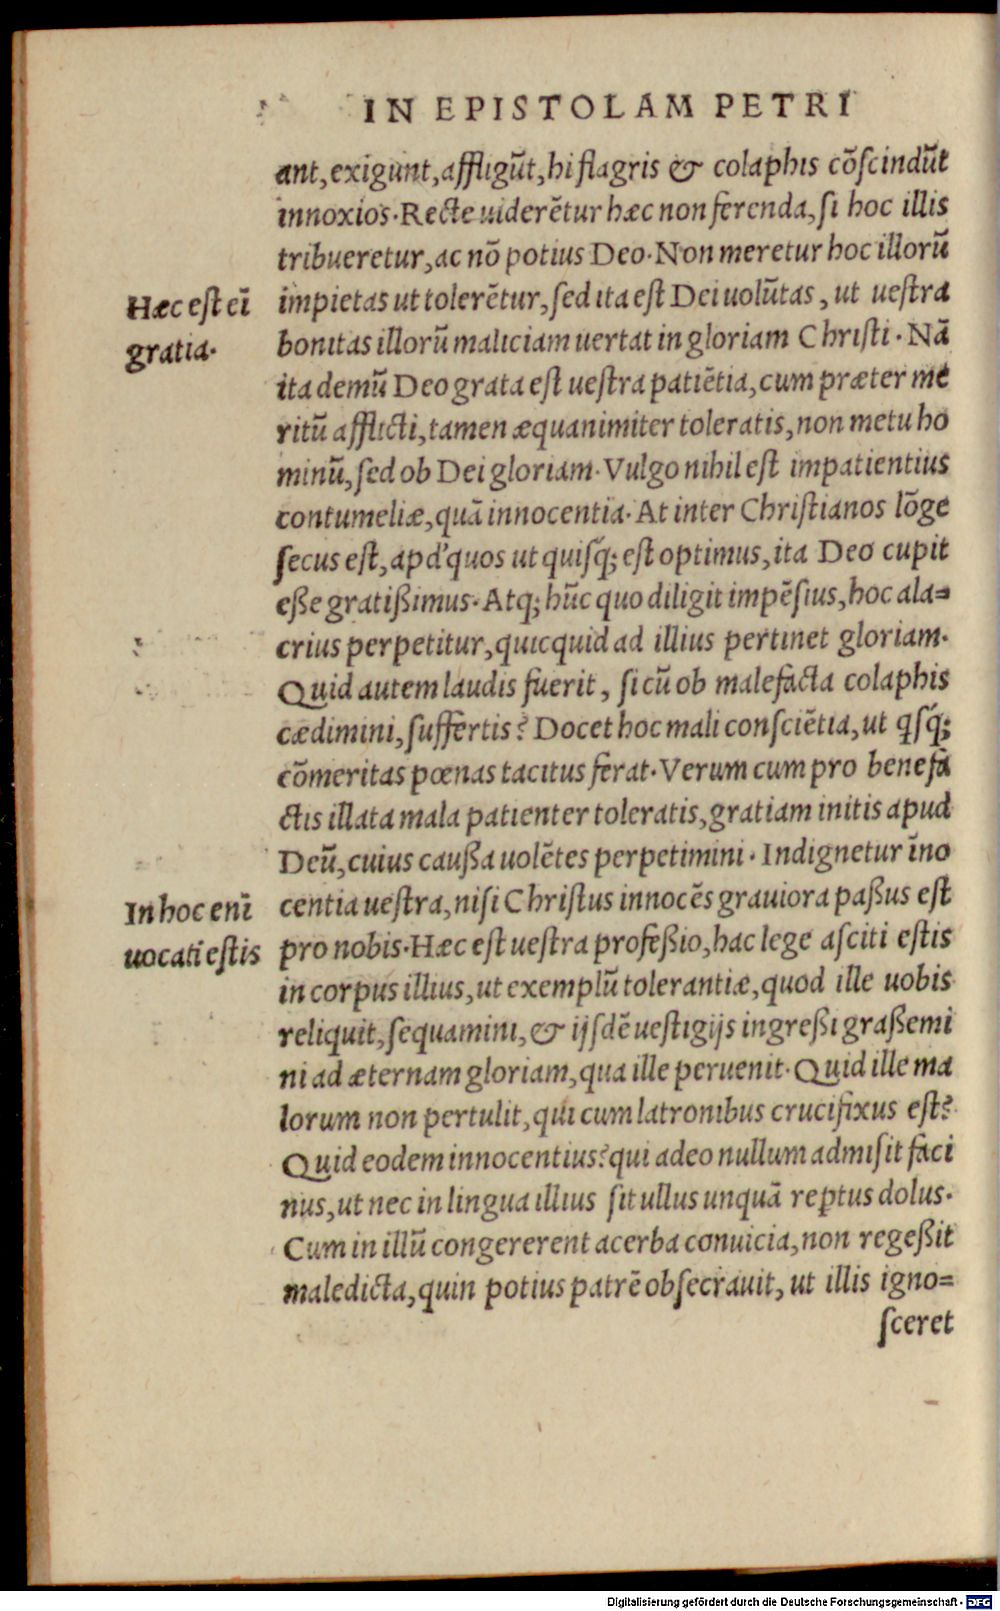 IN EPISTOLAM PETRI
ant, exigunt, affligūt, hi flagris & colaphis cōscindūt
innoxios. Recte uiderētur hæc non ferenda, si hoc illis
tribueretur, ac nō potius Deo. Non meretur hoc illorū
Hæc est eī
impietas ut tolerētur, sed ita est Dei uolūtas, ut uestra
gratia.
bonitas illorū maliciam uertat in gloriam Christi. Nā
ita demū Deo grata est uestra patiētia, cum præter me
ritū afflicti, tamen æquanimiter toleratis, non metu ho
minū, sed ob Dei gloriam. Vulgo nihil est impatientius
contumeliæ, quā innocentia. At inter Christianos lōge
secus est, apd' quos ut quisq; est optimus, ita Deo cupit
eße gratißimus. Atq; hūc quo diligit impēsius, hoc ala=
crius perpetitur, quicquid ad illius pertinet gloriam.
Quid autem laudis fuerit, si cū ob malefacta colaphis
cædimini, suffertis? Docet hoc mali consciētia, ut qsq;
cōmeritas pœnas tacitus ferat. Verum cum pro benefa
ctis illata mala patienter toleratis, gratiam initis apud
Deū, cuius caußa uolētes perpetimini. Indignetur īno
In hoc enī
centia uestra, nisi Christus innocēs grauiora paßus est
uocati estis
pro nobis. Hæc est uestra profeßio, hac lege asciti estis
in corpus illius, ut exemplū tolerantiæ, quod ille uobis
reliquit, sequamini, & ijsdē uestigijs ingreßi graßemi
ni ad æternam gloriam, qua ille peruenit. Quid ille ma
lorum non pertulit, qui cum latronibus crucifixus est?
Quid eodem innocentius? qui adeo nullum admisit faci
nus, ut nec in lingua illius sit ullus unquā reptus dolus.
Cum in illū congererent acerba conuicia, non regeßit
maledicta, quin potius patrē obsecrauit, ut illis igno=
sceret
Digitalisierung gefördert durch die Deutsche Forschungsgemeinschaft - DFG